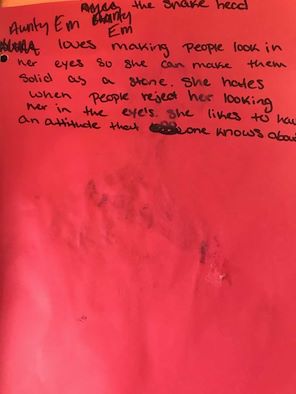 the snake head
Aunty Em Aunty
Em
loves making people look in
her eyes so she can make them
solid as a stone. She hates
when people reject her looking
her in the eye's. She likes to hav
an attitude that one knows abou